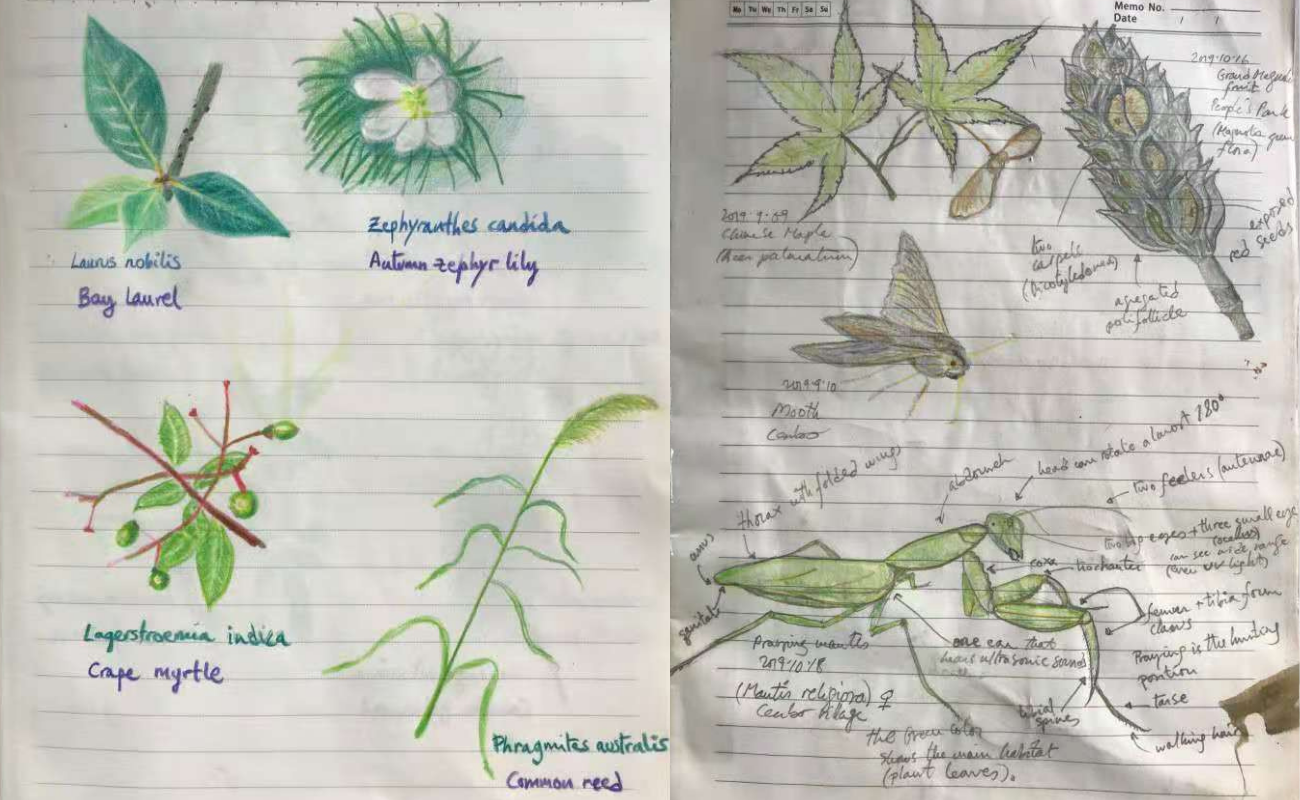 Laurus nobilis
Bay laurel
Zephyranthes candida
Autumn zephyr lily
Lagerstroemia indica
Crape myrtle
Phragmites australis
Common reed
Mo Tu We Th Fr Sa Su
Memo No.
Date / /
2019.10.16
fruit
People's Park
(Magnolia
flora)
exposed
red seeds
two
carpels
(Dicotyledones)
agregated
2019.9.09
Chinese Maple
2019.9.10
Mooth
Cenbo
thorax with folded wings
head can rotate almost 180°
two feelers (antennae)
anus
coxa
trochanter
can see wide range
(even uv light)
femur + tibia form
claws
Praying is the hunting
position
one ear that
hears ultrasonic sound
Praying mantis
2019.10.18
(Mantis religiosa) ♀
Cenbo village
tibial
spines
the green color
shows the main habitat
(plant leaves).
tarse
walking